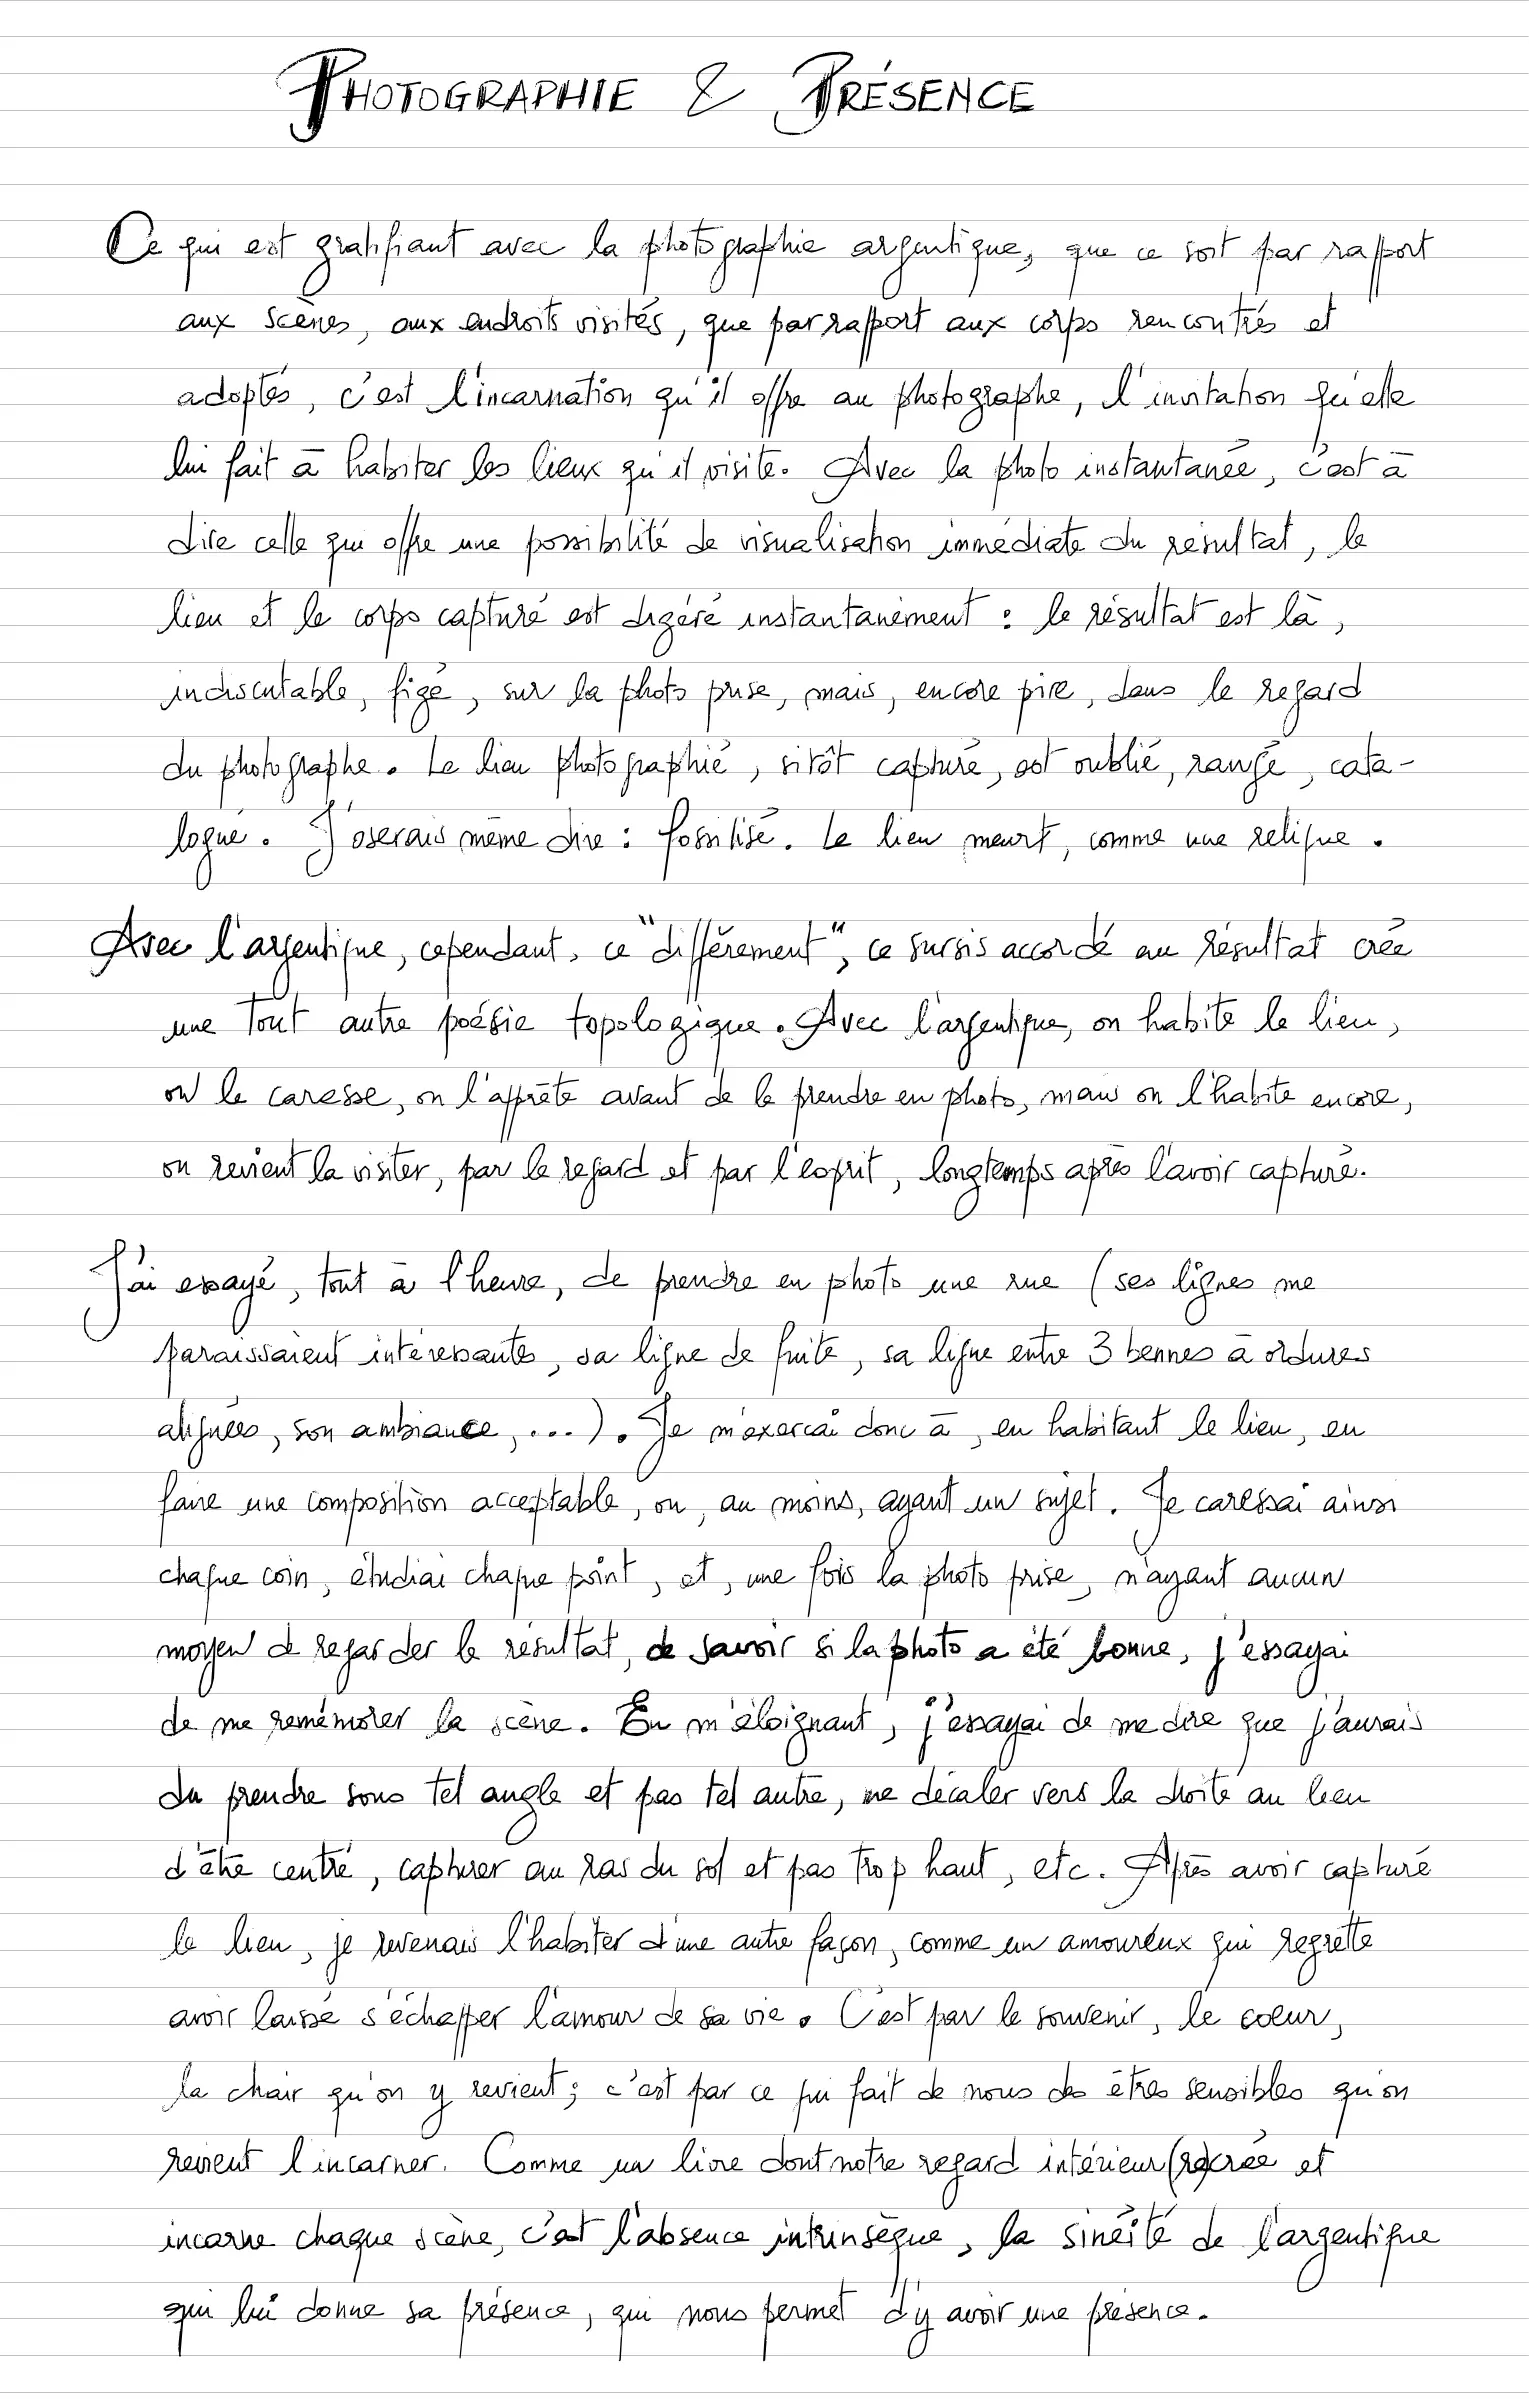 PHOTOGRAPHIE & PRÉSENCE
Ce qui est gratifiant avec la photographie argentique, que ce soit par rapport
aux scènes, aux endroits visités, que par rapport aux corps rencontrés et
adoptés, c'est l'incarnation qu'il offre au photographe, l'invitation qu'elle
lui fait à habiter les lieux qu'il visite. Avec la photo instantanée, c'est à
dire celle qui offre une possibilité de visualisation immédiate du résultat, le
lieu et le corps capturé est digéré instantanément : le résultat est là,
indiscutable, figé, sur la photo prise, mais, encore pire, dans le regard
du photographe. Le lieu photographié, sitôt capturé, est oublié, rangé, cata-
logué. J'oserais même dire : fossilisé. Le lieu meurt, comme une relique.
Avec l'argentique, cependant, ce "différement", ce sursis accordé au résultat crée
une tout autre poésie topologique. Avec l'argentique, on habite le lieu,
on le caresse, on l'apprête avant de le prendre en photo, mais on l'habite encore,
on revient la visiter, par le regard et par l'esprit, longtemps après l'avoir capturé.
J'ai essayé, tout à l'heure, de prendre en photo une rue (ses lignes me
paraissaient intéressantes, sa ligne de fuite, sa ligne entre 3 bennes à ordures
alignées, son ambiance, ...). Je m'exerçai donc à, en habitant le lieu, en
faire une composition acceptable, ou, au moins, ayant un sujet. Je caressai ainsi
chaque coin, étudiai chaque point, et, une fois la photo prise, n'ayant aucun
moyen de regarder le résultat, de savoir si la photo a été bonne, j'essayai
de me remémorer la scène. En m'éloignant, j'essayai de me dire que j'aurais
du prendre sous tel angle et pas tel autre, me décaler vers la droite au lieu
d'être centré, capturer au ras du sol et pas trop haut, etc. Après avoir capturé
le lieu, je revenais l'habiter d'une autre façon, comme un amoureux qui regrette
avoir laissé s'échapper l'amour de sa vie. C'est par le souvenir, le coeur,
la chair qu'on y revient ; c'est par ce qui fait de nous des êtres sensibles qu'on
revient l'incarner. Comme un livre dont notre regard intérieur (re)crée et
incarne chaque scène, c'est l'absence intrinsèque, la sinéité de l'argentique
qui lui donne sa présence, qui nous permet d'y avoir une présence.